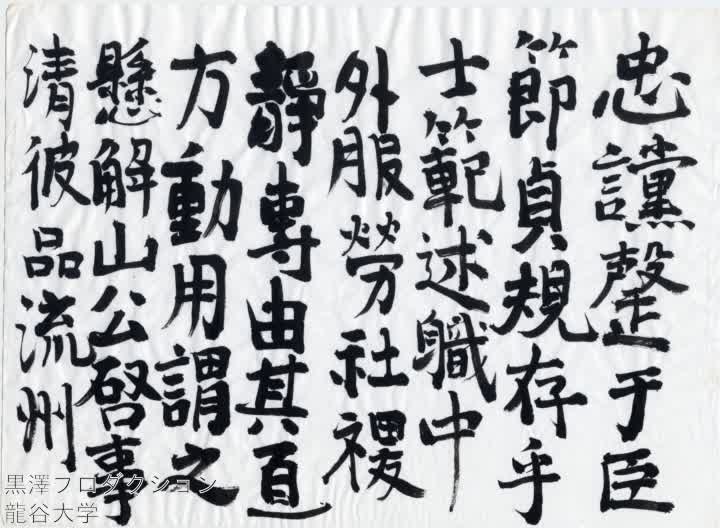 忠讜罄于臣
節貞規存乎
士範述軄中
外服勞社稷
靜專由其直
方動用謂之
懸解山公啓事
清彼品流州
黒澤プロダクション
龍谷大学